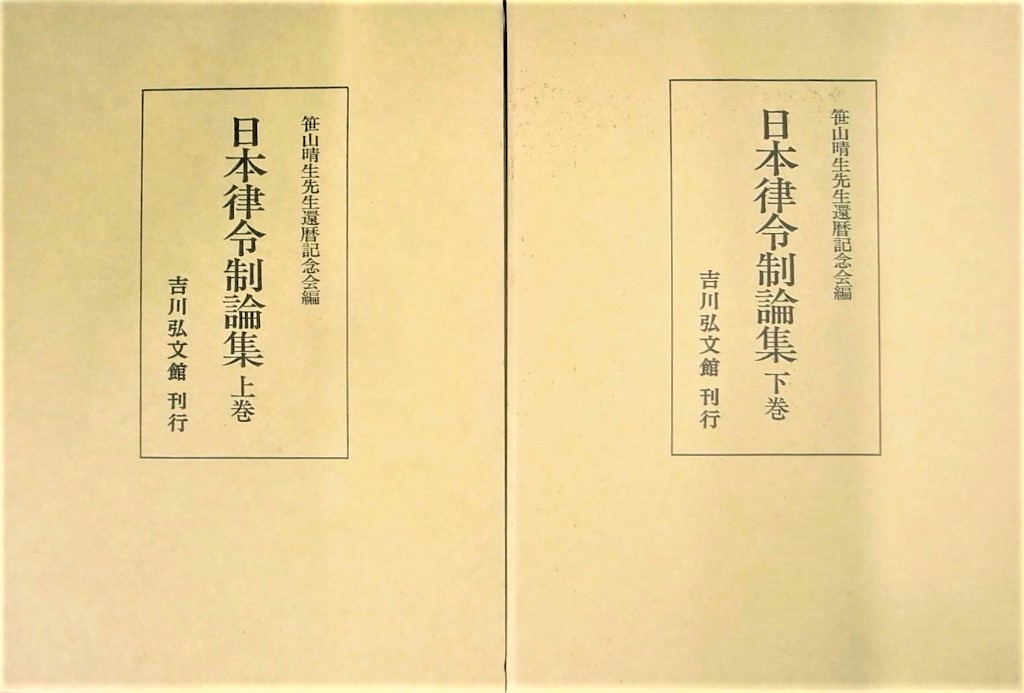 笹山晴生先生還暦記念会編
日本律令制論集 上巻
吉川弘文館 刊行
笹山晴生先生還暦記念会編
日本律令制論集 下巻
吉川弘文館 刊行